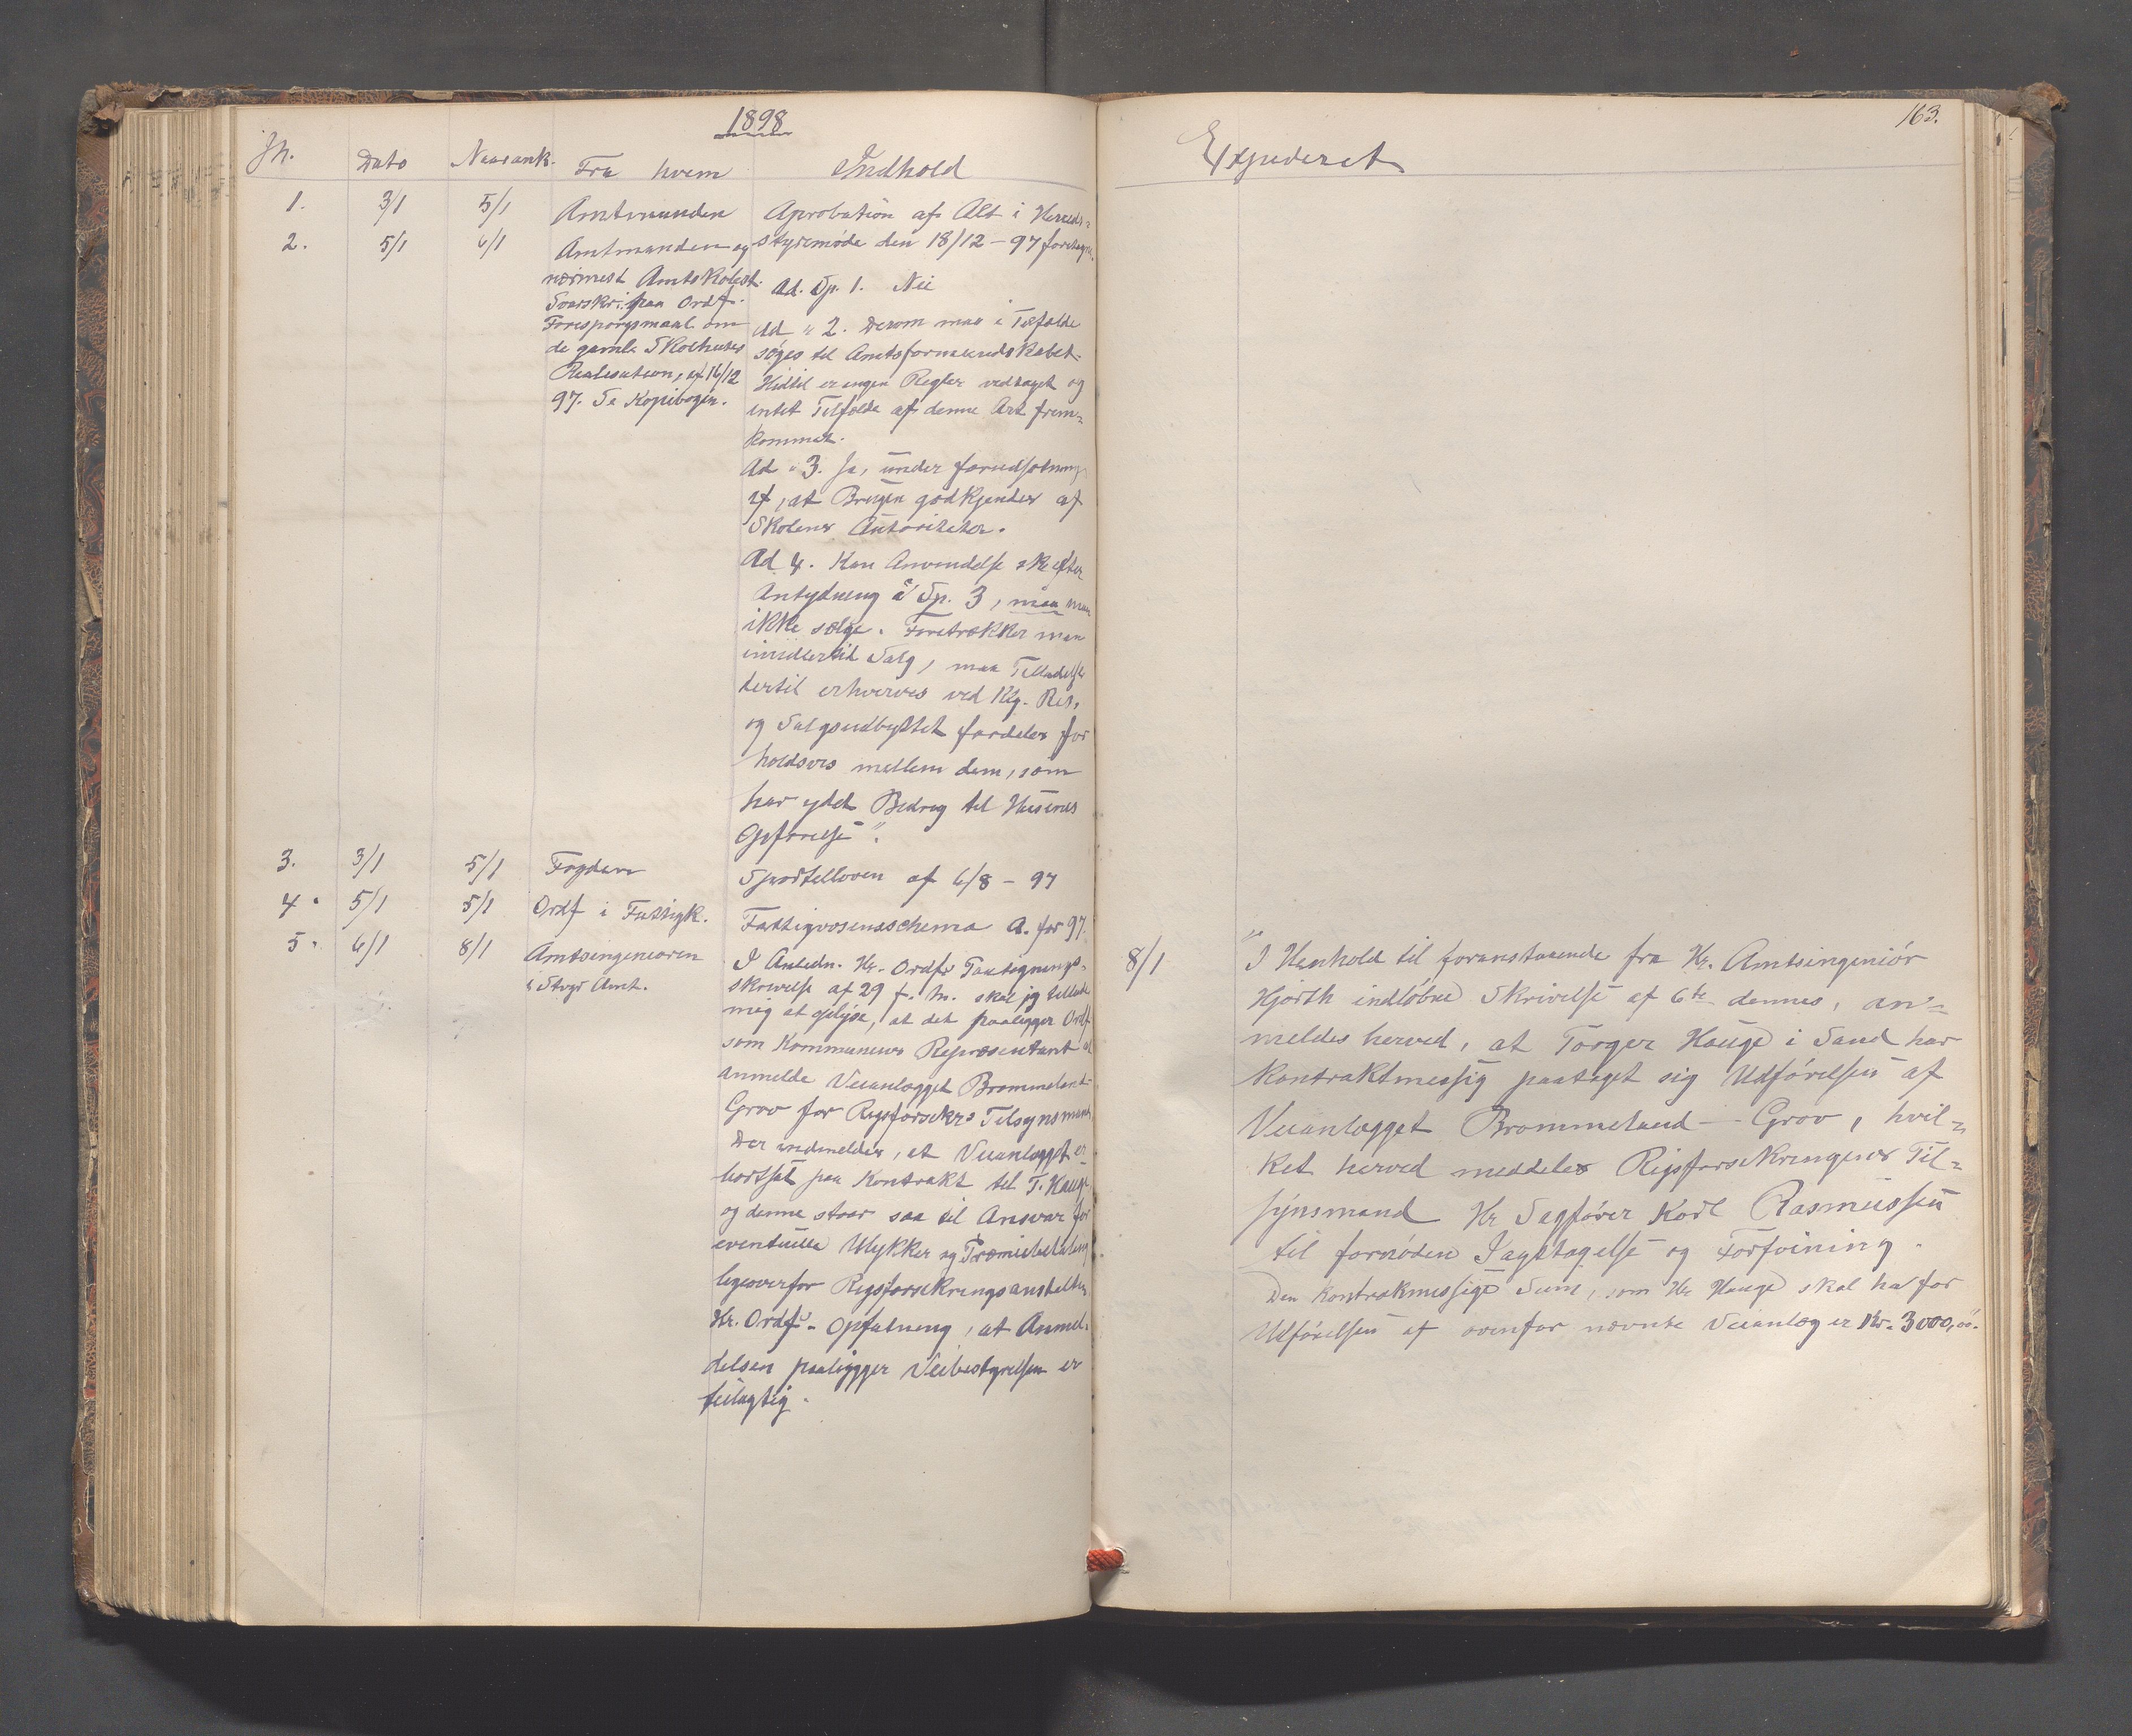 1898
Jn. Dato Naarank. Fra hvem Indhold
1. 3/1 5/1 Amtmanden Aprobation af Alt i Herreds-
styremøde den 18/12 - 97 foretagne.
2. 5/1 6/1 Amtmanden og
nærmest Amtskolest.
Svarskr. paa Ordf.
Forespørgsmaal om
de gamle Skolehuses
Realisation, af 16/12
97. Se Kopibogen.
Ad. Sp. 1. Nei
Ad " 2. Derom maa i Tilfælde
søges til Amtsformandskabet.
Hidtil er ingen Regler vedtaget og
intet Tilfælde af denne Art frem-
kommet.
Ad " 3. Ja, under forudsætning
af, at Brugen godkjendes af
Skolens Autoriteter.
Ad 4. Kan Anvendelse ske efter
Antydning i Sp. 3, maa man
ikke sælge. Foretrækker man
imidlertid Salg, maa Tilladelse
dertil erhverves ved Klg. Res,
og Salgsudbyttet fordeles for
holdsvis mellem dem, som
har ydet Bidrag til Husenes
Opførelse".
3. 3/1 5/1 Fogden Sportelloven af 6/8 - 97
4. 5/1 5/1 Ordf i Fattigk. Fattigvæsensschema A. for 97.
5. 6/1 8/1 Amtsingeniøren
i Stvgr Amt.
I Anledn. Hr. Ordfs
skrivelse af 29 f. M. skal jeg tillade
mig at oplyse, at det paaligger Ordf
som Kommunens Repræsentant at
anmelde Veianlægget Brommeland-
Grov for Rigsforsikrs Tilsynsmand.
Der indmeldes, at Veianlægget er
bortsat paa Kontrakt til T. Hauge
og denne staar saa til Ansvar for
eventuelle Ulykker og Præmiebetaling
ligeoverfor Rigsforsikringsanstalten
Hr. Ordf's Opfatning, at Anmel-
delsen paaligger Veibestyrelsen er
feilagtig.
163.
Expederet
8/1 "I Henhold til foranstaaende fra Hr. Amtsingeniør
Hjorth indløbne Skrivelse af 6te dennes, an-
meldes herved, at Torger Hauge i Sand har
kontraktmessig paataget sig Udførelsen af
Veianlægget Brommeland - Grov, hvil-
ket herved meddeles Rigsforsikringens Til-
synsmand Hr Sagfører Karl Rasmussen
til fornøden Iagttagelse og Forføining.
Den kontrakmessige Sum, som Hr Hauge skal ha for
Udførelsen af ovenfor nævnte Veianlæg er Kr. 3000,oo."